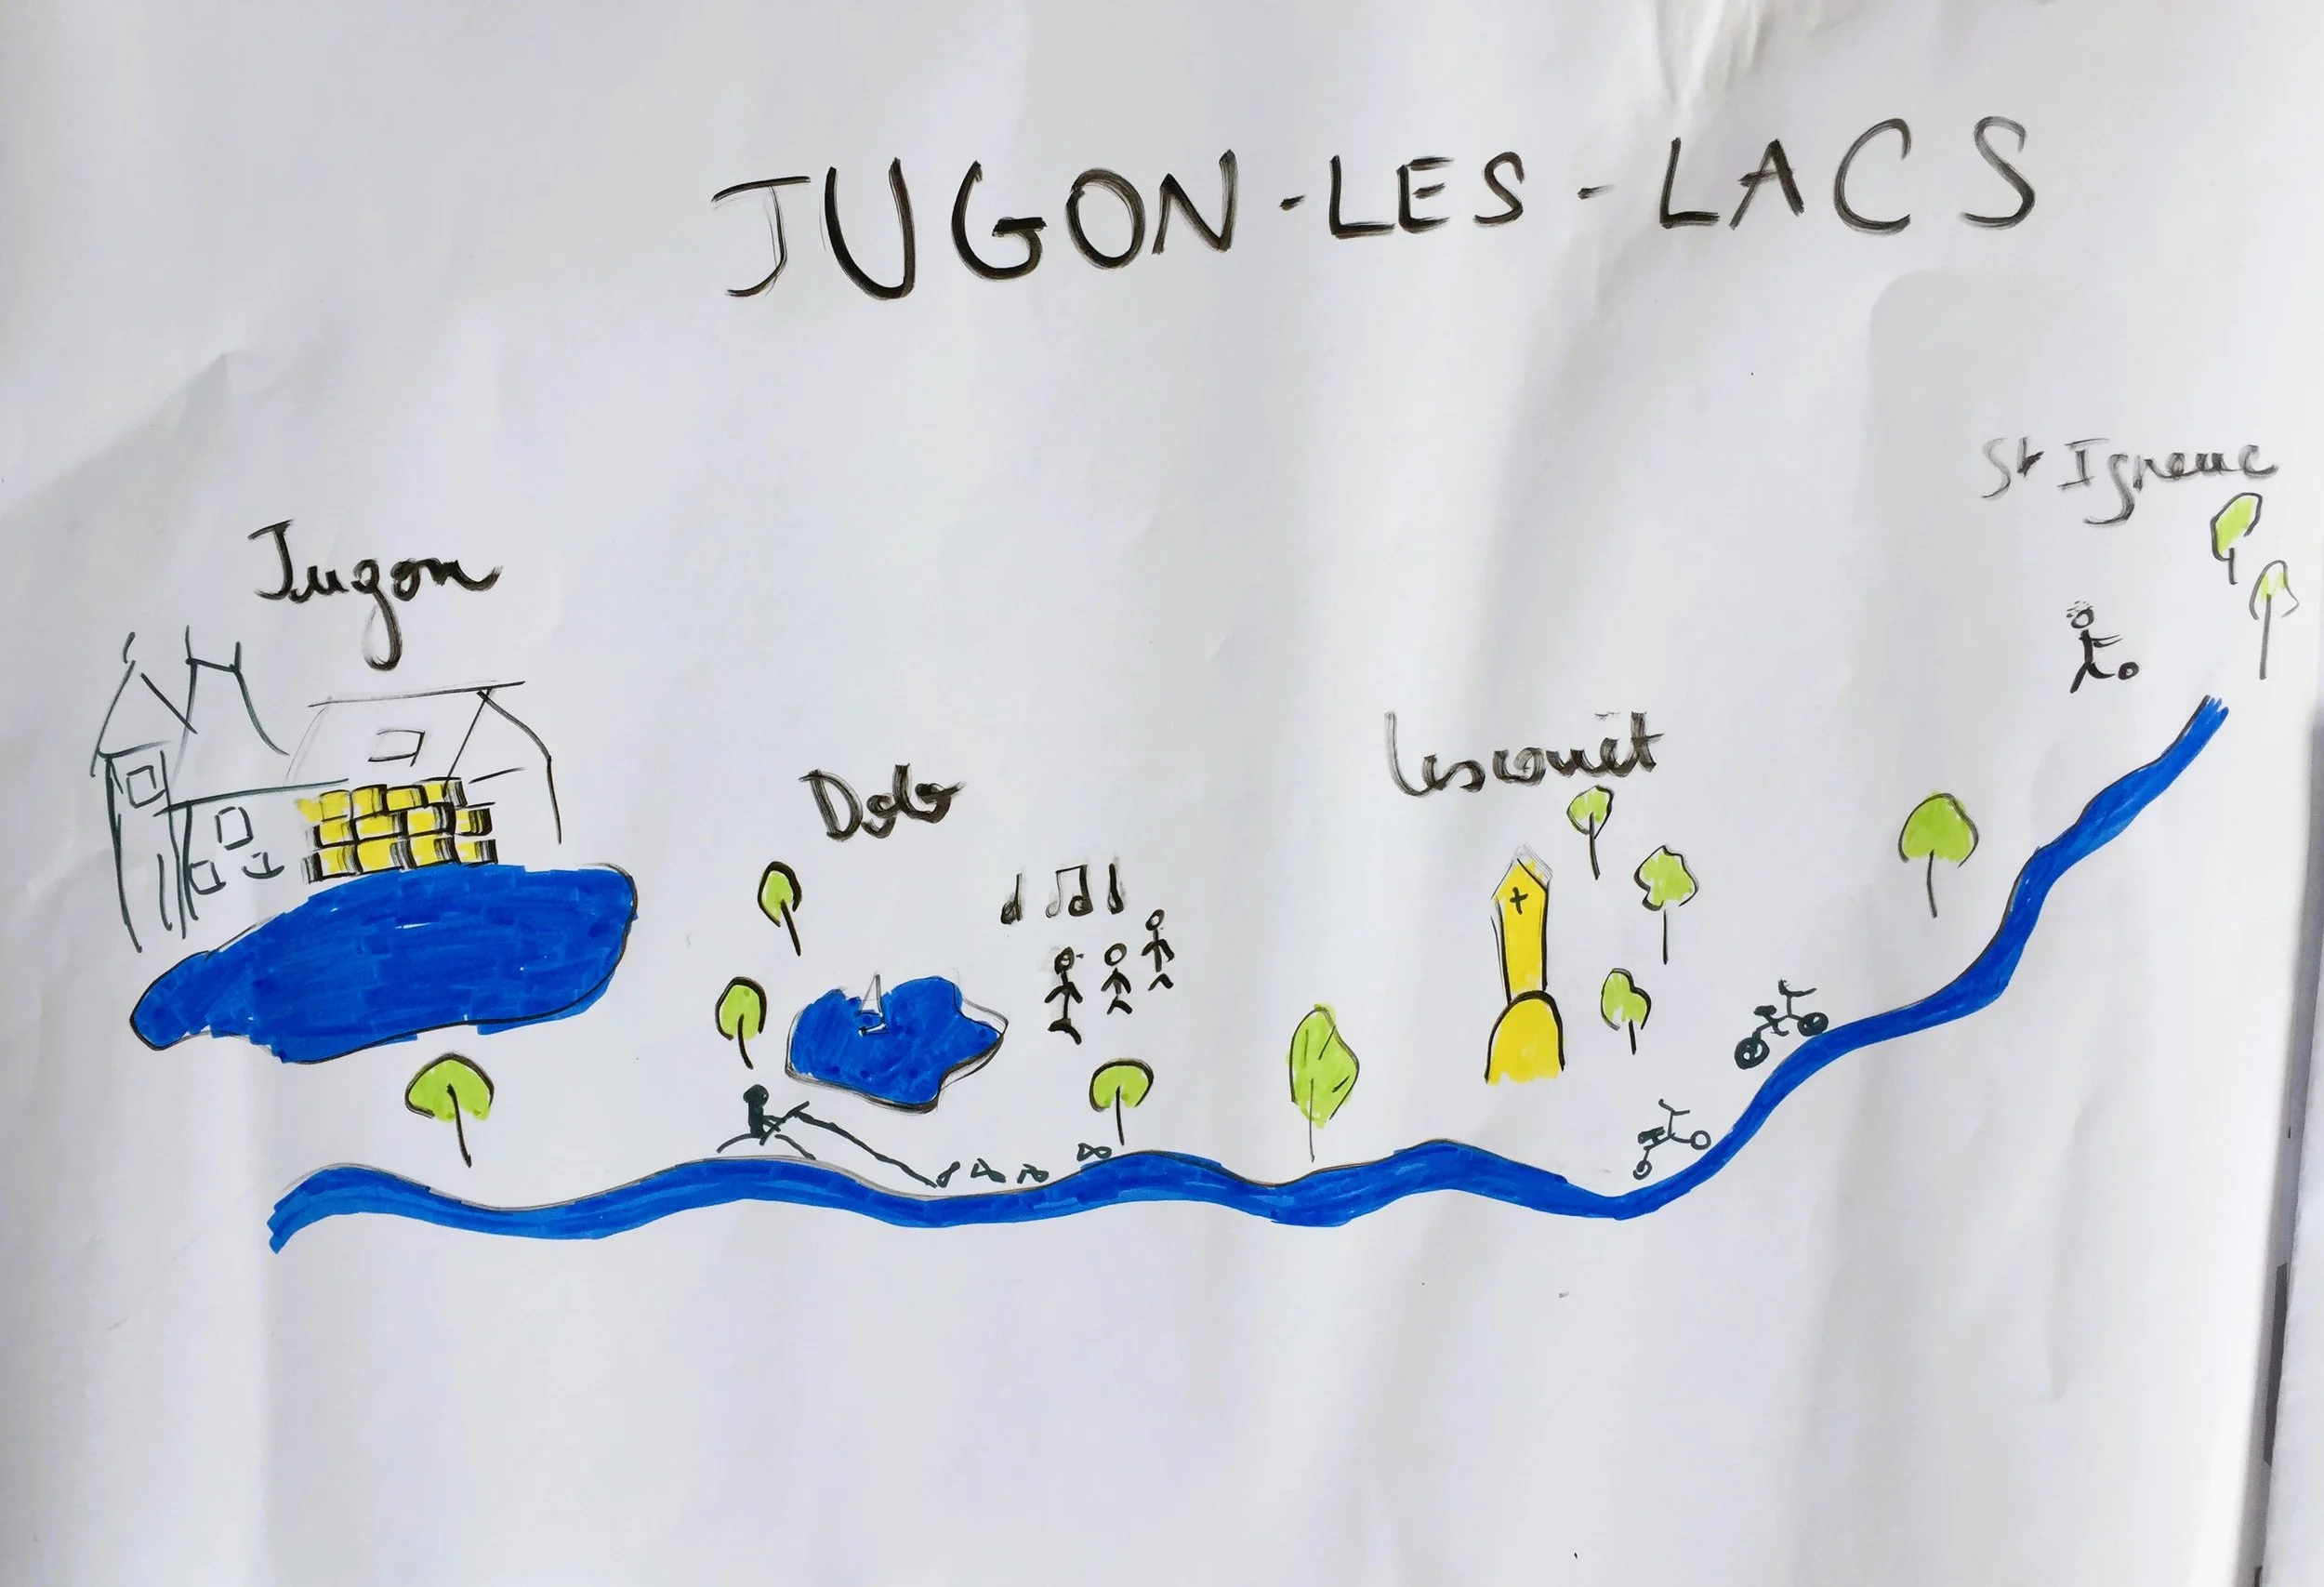 JUGON-LES-LACS
St Igneuc
Jugon
Lescouët
Dolo